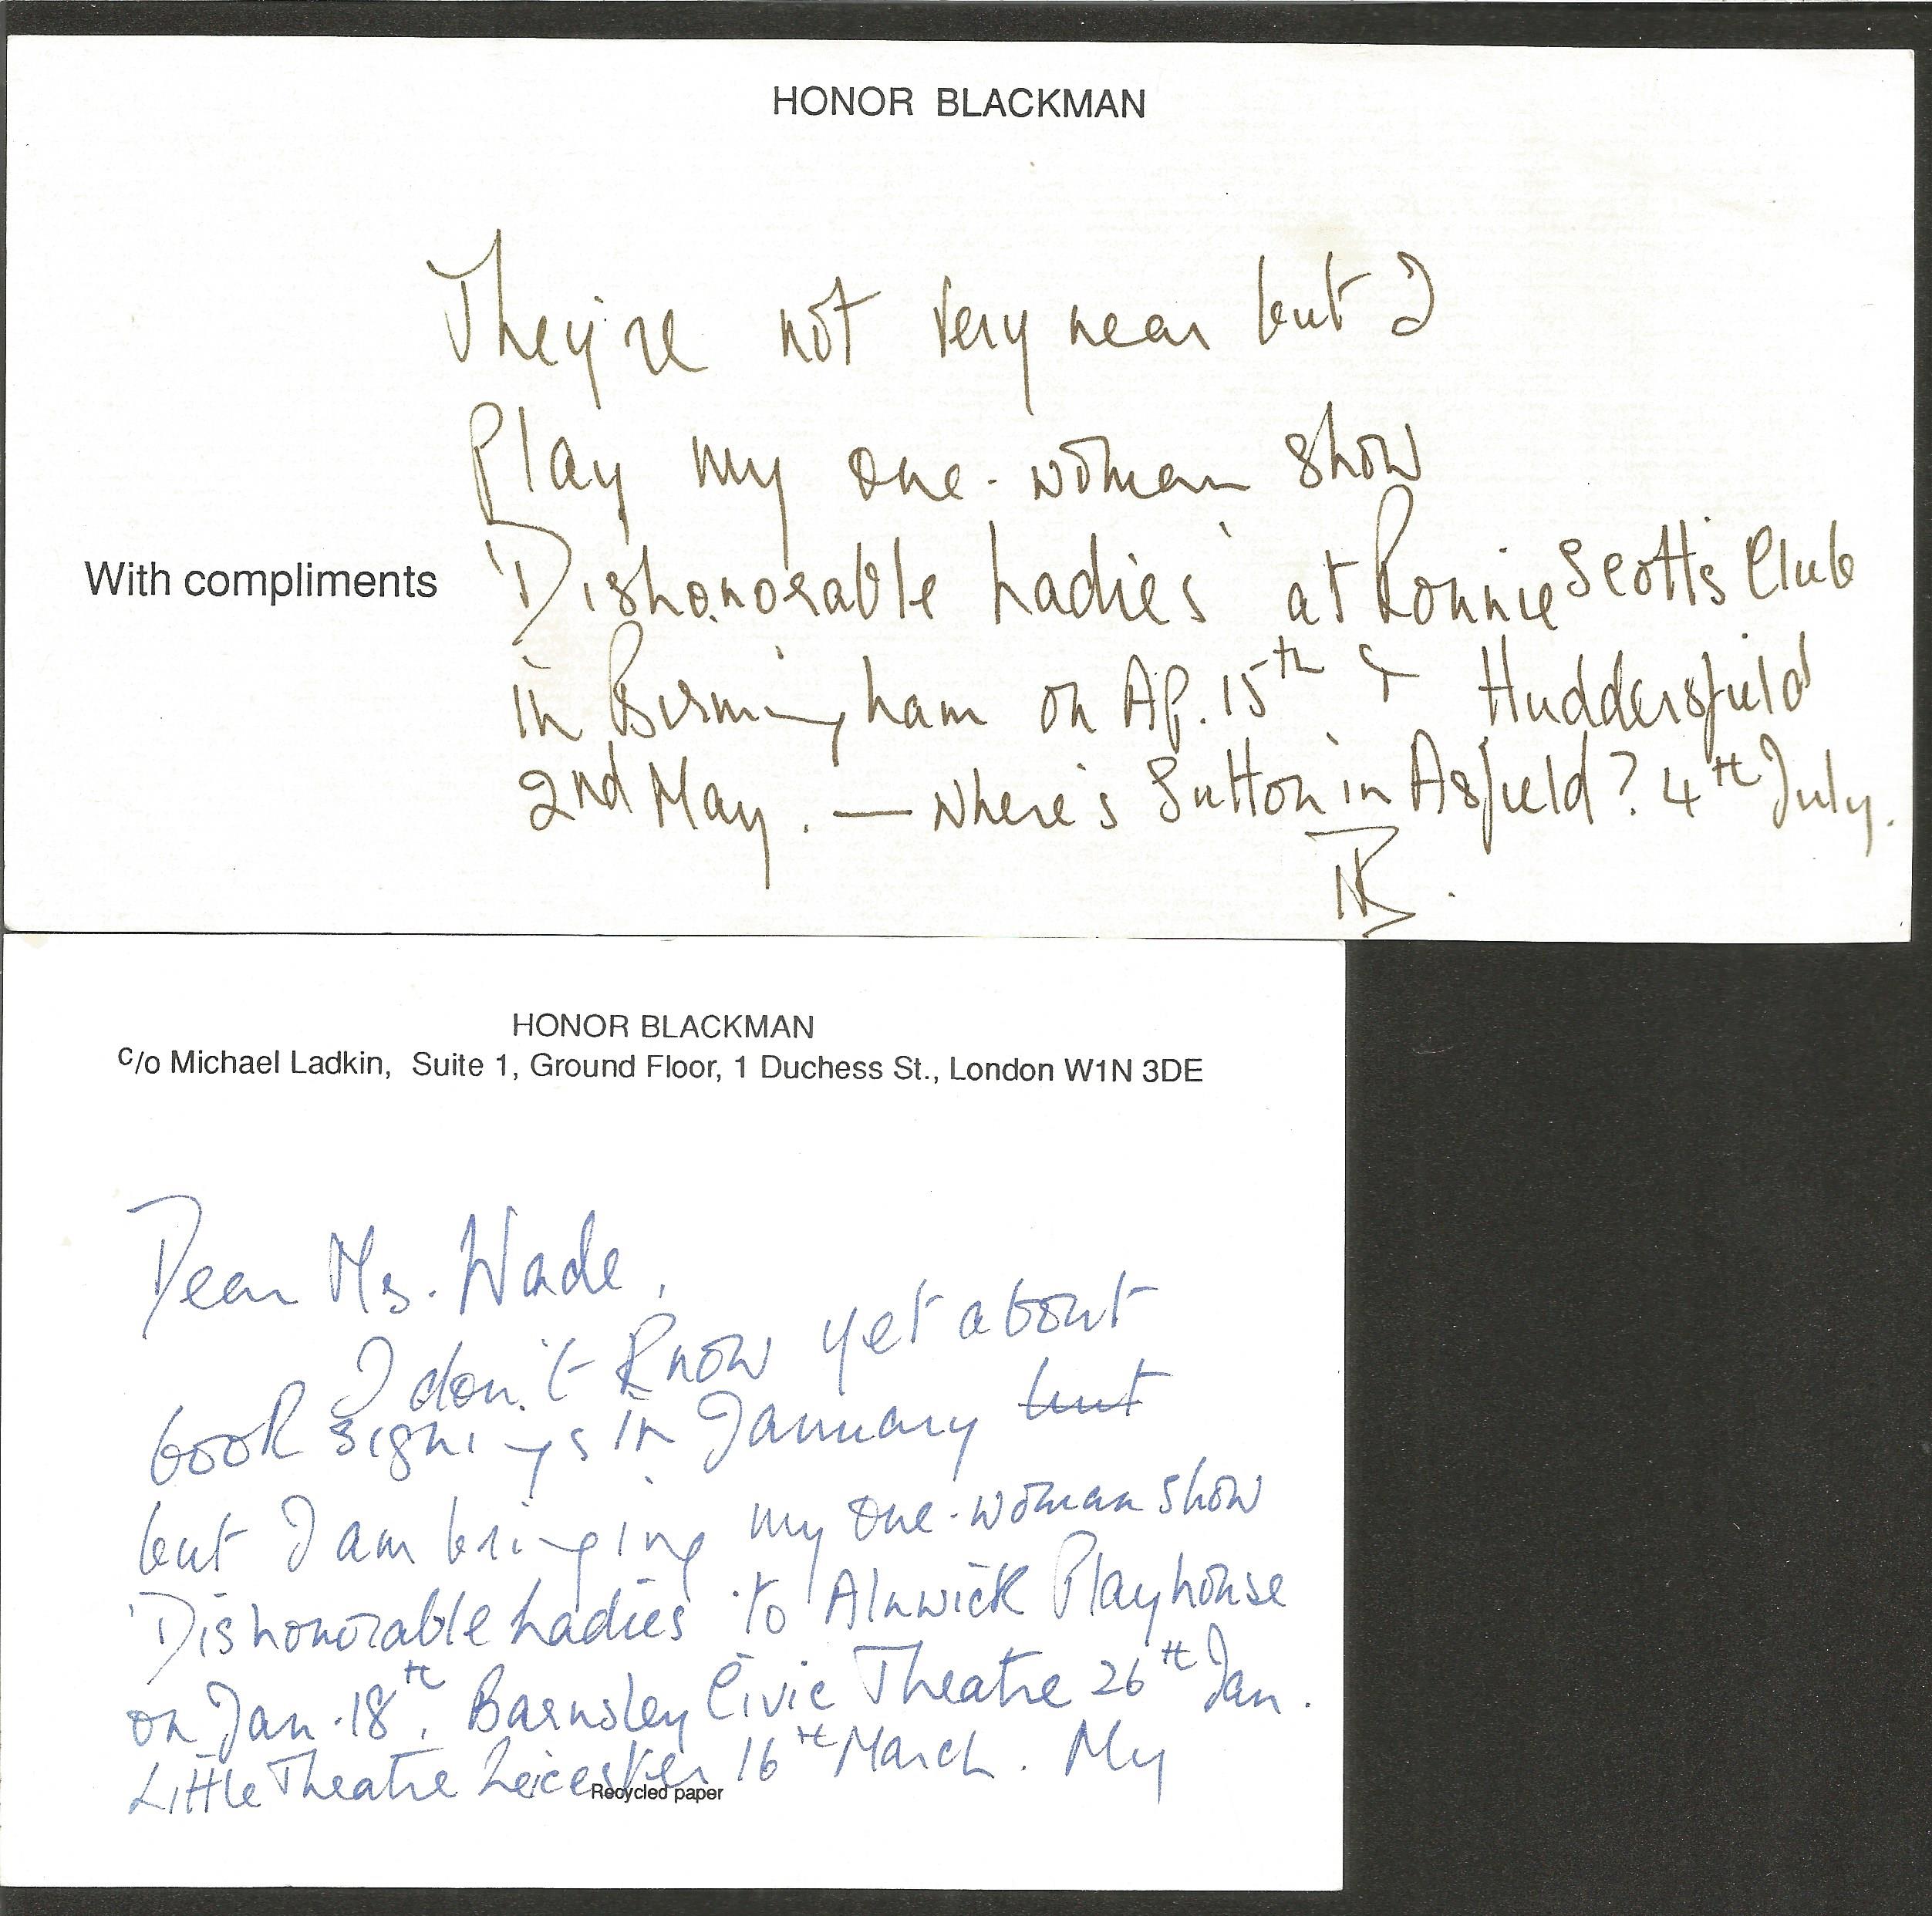 HONOR BLACKMAN
They're not very near but I
Play my one-woman show
With compliments
'Dishonorable Ladies' at Ronnie Scott's Club
in Birmingham on Ap. 15th & Huddersfield
2nd May. — Where's Sutton in Asfield? 4th July.
HB.
HONOR BLACKMAN
c/o Michael Ladkin, Suite 1, Ground Floor, 1 Duchess St., London W1N 3DE
Dear Ms. Wade,
I don't know yet about
book signings in January but
but I am bringing my one-woman show
'Dishonorable Ladies' to Alnwick Playhouse
on Jan. 18th, Barnsley Civic Theatre 26th Jan.
Little Theatre Leicester 16th March. My
Recycled paper